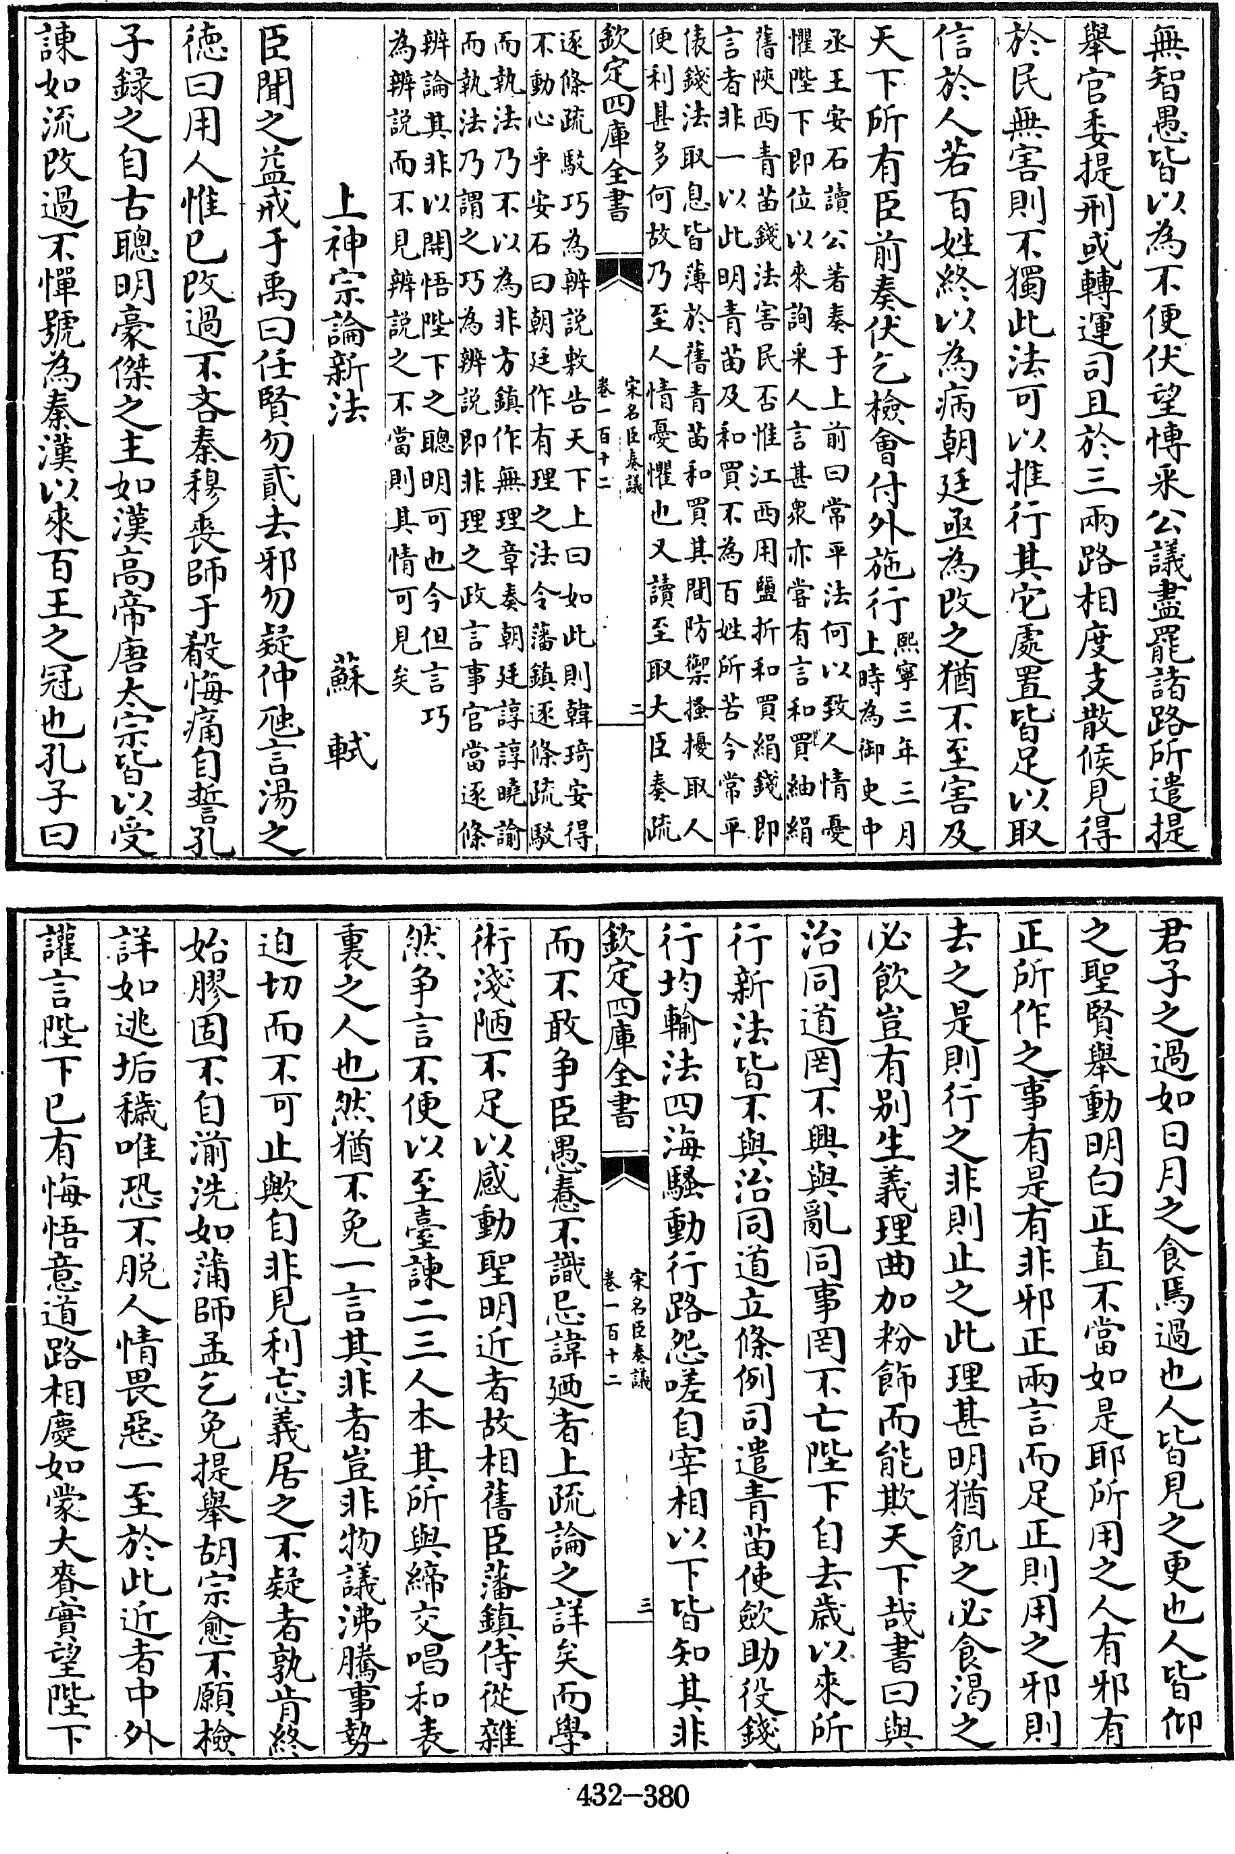 無智愚皆以為不便伏望博采公議盡罷諸路所遣提
舉官委提刑或轉運司且於三兩路相度支散候見得
於民無害則不獨此法可以推行其它處置皆足以取
信於人若百姓終以為病朝廷亟為改之猶不至害及
天下所有臣前奏伏乞檢會付外施行熙寧三年三月
上時為御史中
丞王安石讀公著奏于上前曰常平法何以致人情憂
懼陛下即位以來詢采人言甚衆亦嘗有言和買紬絹
舊陜西青苗錢法害民否惟江西用鹽折和買絹錢即
言者非一以此明青苗及和買不為百姓所苦今常平
俵錢法取息皆薄於舊青苗和買其間防禦搔擾取人
便利甚多何故乃至人情憂懼也又讀至取大臣奏疏
欽定四庫全書
宋名臣奏議
卷一百十二
二
逐條疏駁巧為辨説敷告天下上曰如此則韓琦安得
不動心乎安石曰朝廷作有理之法令藩鎮逐條疏駁
而執法乃不以為非方鎮作無理章奏朝廷諄諄曉諭
而執法乃謂之巧為辨説即非理之政言事官當逐條
辨論其非以開悟陛下之聰明可也今但言巧
為辨説而不見辨説之不當則其情可見矣
上神宗論新法
蘇軾
臣聞之益戒于禹曰任賢勿貳去邪勿疑仲虺言湯之
德曰用人惟已改過不吝秦穆喪師于殽悔痛自誓孔
子録之自古聰明豪傑之主如漢高帝唐太宗皆以受
諫如流改過不憚號為秦漢以來百王之冠也孔子曰
君子之過如日月之食焉過也人皆見之更也人皆仰
之聖賢舉動明白正直不當如是耶所用之人有邪有
正所作之事有是有非邪正兩言而足正則用之邪則
去之是則行之非則止之此理甚明猶飢之必食渴之
必飲豈有别生義理曲加粉飾而能欺天下哉書曰與
治同道罔不興與亂同事罔不亡陛下自去歲以來所
行新法皆不與治同道立條例司遣青苗使歛助役錢
行均輸法四海騷動行路怨嗟自宰相以下皆知其非
欽定四庫全書
宋名臣奏議
卷一百十二
三
而不敢争臣愚惷不識忌諱廼者上疏論之詳矣而學
術淺陋不足以感動聖明近者故相舊臣藩鎮侍從雜
然争言不便以至臺諫二三人本其所與締交唱和表
裏之人也然猶不免一言其非者豈非物議沸騰事勢
迫切而不可止歟自非見利忘義居之不疑者孰肯終
始膠固不自湔洗如蒲師孟乞免提舉胡宗愈不願檢
詳如逃垢穢唯恐不脱人情畏惡一至於此近者中外
讙言陛下已有悔悟意道路相慶如蒙大賚實望陛下
432-380